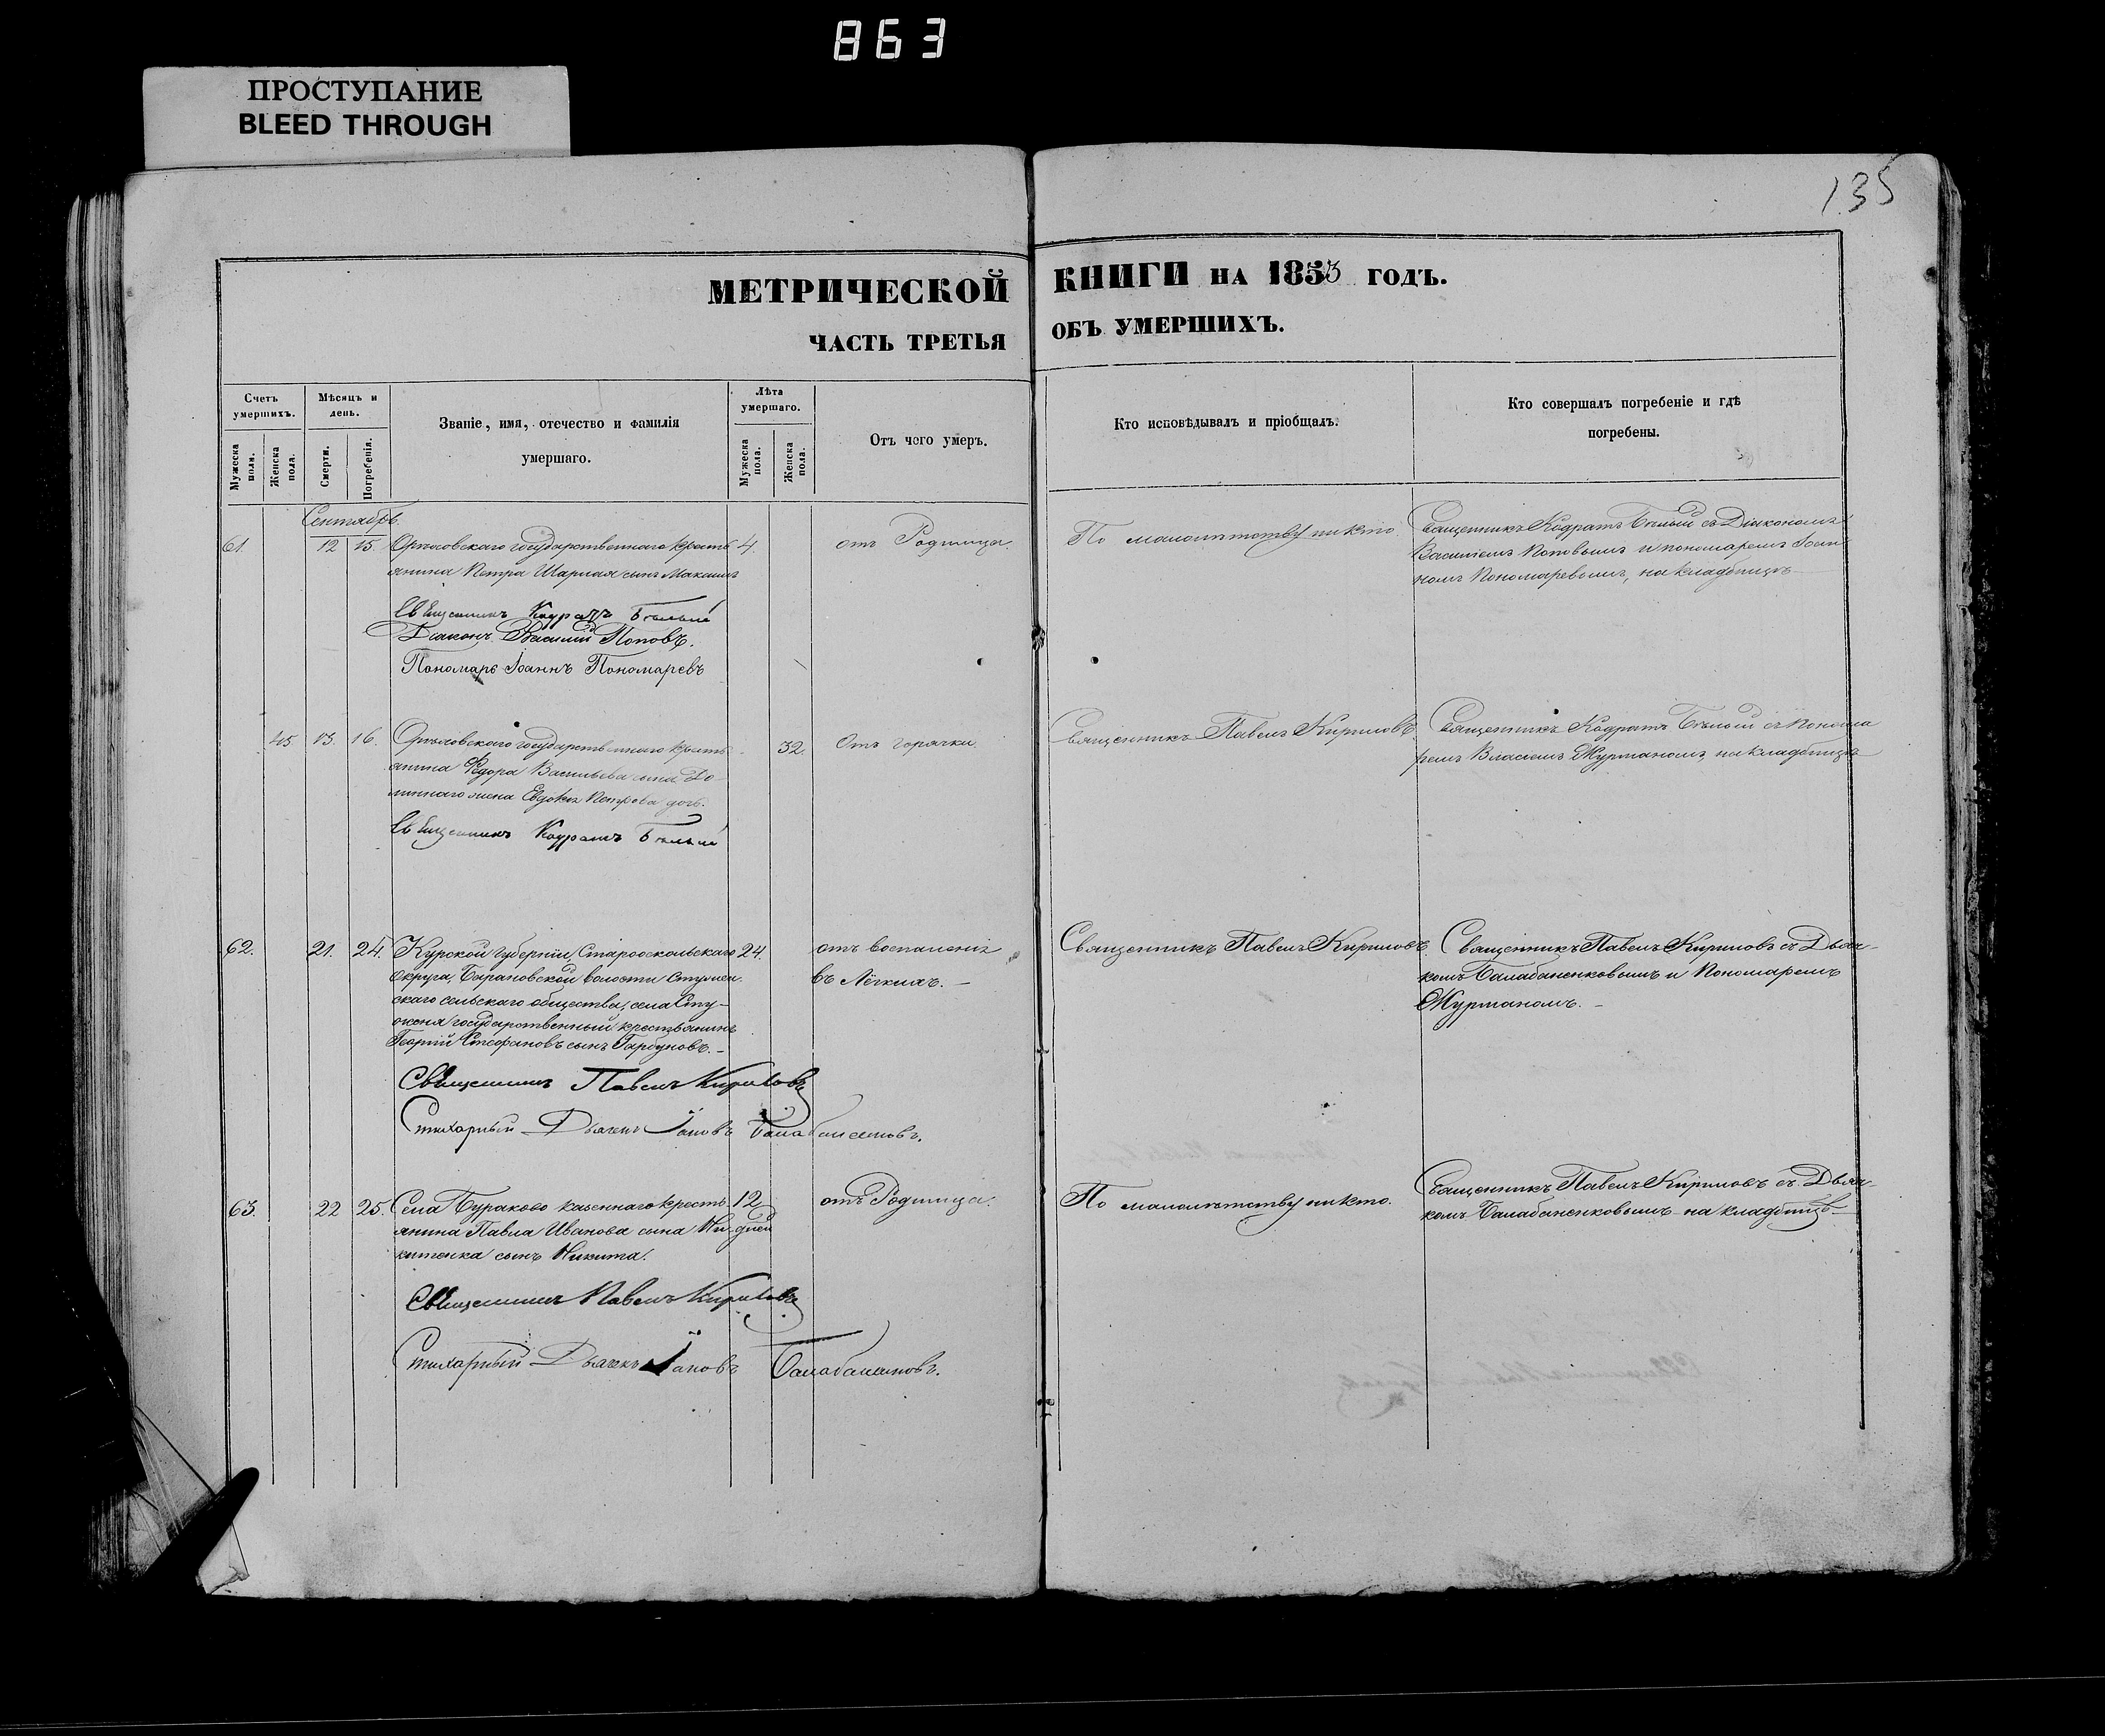 863
ПРОСТУПАНИЕ
BLEED THROUGH
135
МЕТРИЧЕСКОЙ КНИГИ НА 1853 ГОДЪ.
ЧАСТЬ ТРЕТЬЯ ОБЪ УМЕРШИХЪ.
Счетъ умершихъ.
Мѣсяцъ и день.
Званіе, имя, отечество и фамилія умершаго.
Лѣта умершаго.
Отъ чего умеръ.
Кто исповѣдывалъ и пріобщалъ.
Кто совершалъ погребеніе и гдѣ погребены.
Мужеска пола.
Женска пола.
Смерти.
Погребенія.
Мужеска пола.
Женска пола.
Сентябрь.
61. 12 15. Орѣховскаго государственнаго кресть 4. отъ Родимца. По малолѣтству никто Священникъ Кодратъ Бѣлый съ Діакономъ
янина Петра Шарлая сынъ Максимъ Василіемъ Поповымъ и пономаремъ Іоан-
номъ Пономаревымъ, на кладбищѣ
Священникъ Кодратъ Бѣлый
Діаконъ Василій Поповъ.
Пономарь Іоаннъ Пономаревъ
45 13. 16. Орѣховскаго государственнаго кресть- 32. Отъ горячки. Священникъ Павелъ Кириловъ Священникъ Кодратъ Бѣлый съ Понома
янина Федора Васильева сына До- ремъ Власіемъ Журманомъ, на кладбищѣ
жена Евдокія Петрова дочь.
Священникъ Кодратъ Бѣлый
62. 21. 24. Курской губерніи, Старооскольскаго 24. отъ воспаленія Священникъ Павелъ Кириловъ. Священникъ Павелъ Кириловъ съ Дьяч-
округа, Барановской волости въ Лёгкихъ. комъ Балабаненковымъ и Пономаремъ
скаго сельскаго общества, села Журманомъ.
государственный крестьянинъ
Георгій Стефановъ сынъ Гарбузовъ.
Священникъ Павелъ Кириловъ
Стихарный Дьячекъ Іаковъ Балабаненковъ.
63. 22 25. Села Бураково казеннаго кресть- 12 отъ Родимца. По малолѣтству никто. Священникъ Павелъ Кириловъ съ Дьяч-
янина Павла Иванова сына Ни- дней комъ Балабаненковымъ на кладбищѣ
китенка сынъ Никита.
Священникъ Павелъ Кириловъ
Стихарный Дьячекъ Іаковъ Балабаненковъ.